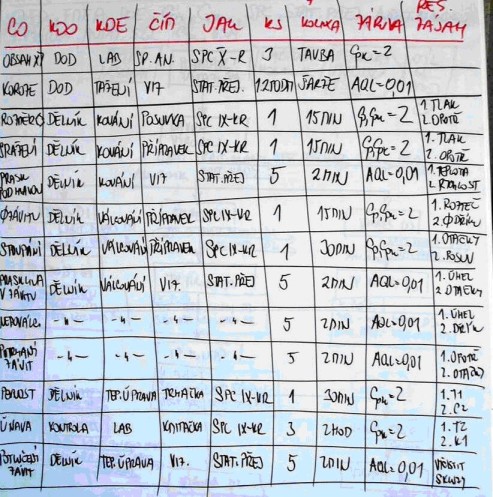 CO KDO KDE ČÍM JAK KS ZÁRUKA RES. ZÁSAH
OBSAH DOD LAB SP. AN. SPC X̄-R 3 TAVBA Cpk=2
KOROZE DOD TAŽENÍ VIZ STAT. PŘEJ. ŠARŽE AQL=0,01
ROZMĚRŮ DĚLNÍK KOVÁNÍ POSUVKA SPC IX-KR 1 15 MIN Cp,Cpk=2 1. TLAK 2. OPOTŘ
DĚLNÍK KOVÁNÍ PŘÍPRAVEK SPC IX-KR 1 15 MIN Cp,Cpk=2 1. TLAK 2. OPOTŘ
PRASK. POD HLAVOU DĚLNÍK KOVÁNÍ VIZ STAT. PŘEJ 5 2 MIN AQL=0,01 1. TEPLOTA 2. RYCHLOST
Ø ZÁVITU DĚLNÍK VÁLCOVÁNÍ PŘÍPRAVEK SPC IX-KR 1 15 MIN Cp,Cpk=2 1. ROZTEČ
STOUPÁNÍ DĚLNÍK VÁLCOVÁNÍ PŘÍPRAVEK SPC IX-KR 1 30 MIN Cp,Cpk=2 1. OTÁČKY 2. POSUV
PRASKLINA V ZÁVITU DĚLNÍK VÁLCOVÁNÍ VIZ. STAT. PŘEJ 5 2 MIN AQL=0,01 1. ÚHEL 2. OTÁČKY
NEDOVÁLC. -〃- -〃- -〃- -〃- 5 2 MIN AQL=0,01 1. ÚHEL 2. DÉLK
ZÁVIT -〃- -〃- -〃- -〃- 5 2 MIN AQL=0,01 1. OPOTŘ 2. OTÁČKY
PEVNOST DĚLNÍK TEP. ÚPRAVA TRHAČKA SPC IX-KR 1 30 MIN Cpk=2 1. T1 2. C2
ÚNAVA KONTROLA LAB KMITAČKA SPC IX-KR 3 2 HOD Cpk=2 1. T2 2. K1
POTLUČENÍ ZÁVIT DĚLNÍK TEP. ÚPRAVA VIZ. STAT. PŘEJ 5 2 MIN AQL=0,01 VYČISTIT SKLUZY